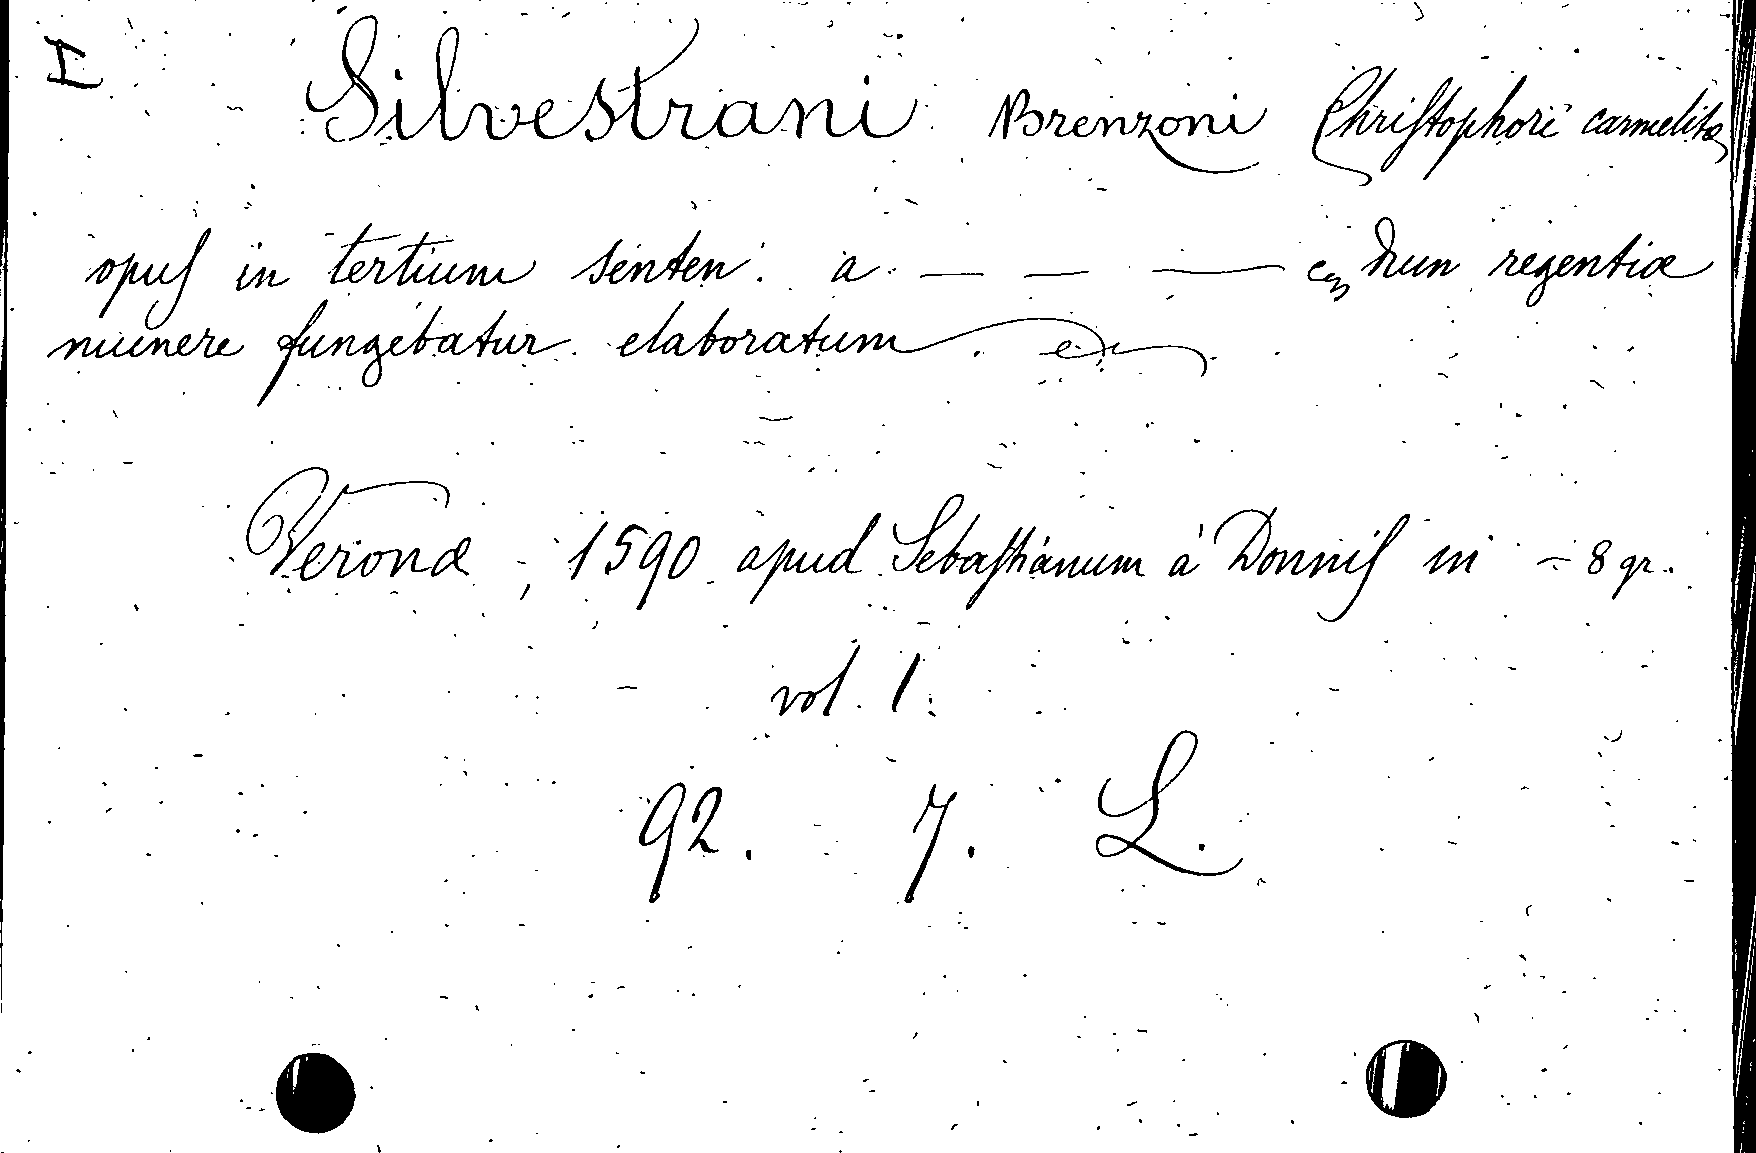 I
Silvestrani Brenzoni Christophori carmelitæ
opus in tertium senten. a — — — hun regentiæ
munere fungebatur elaboratum.
Veronæ, 1590 apud Sebastianum à Donnis in - 8 gr.
vol. 1.
92. 7. L.